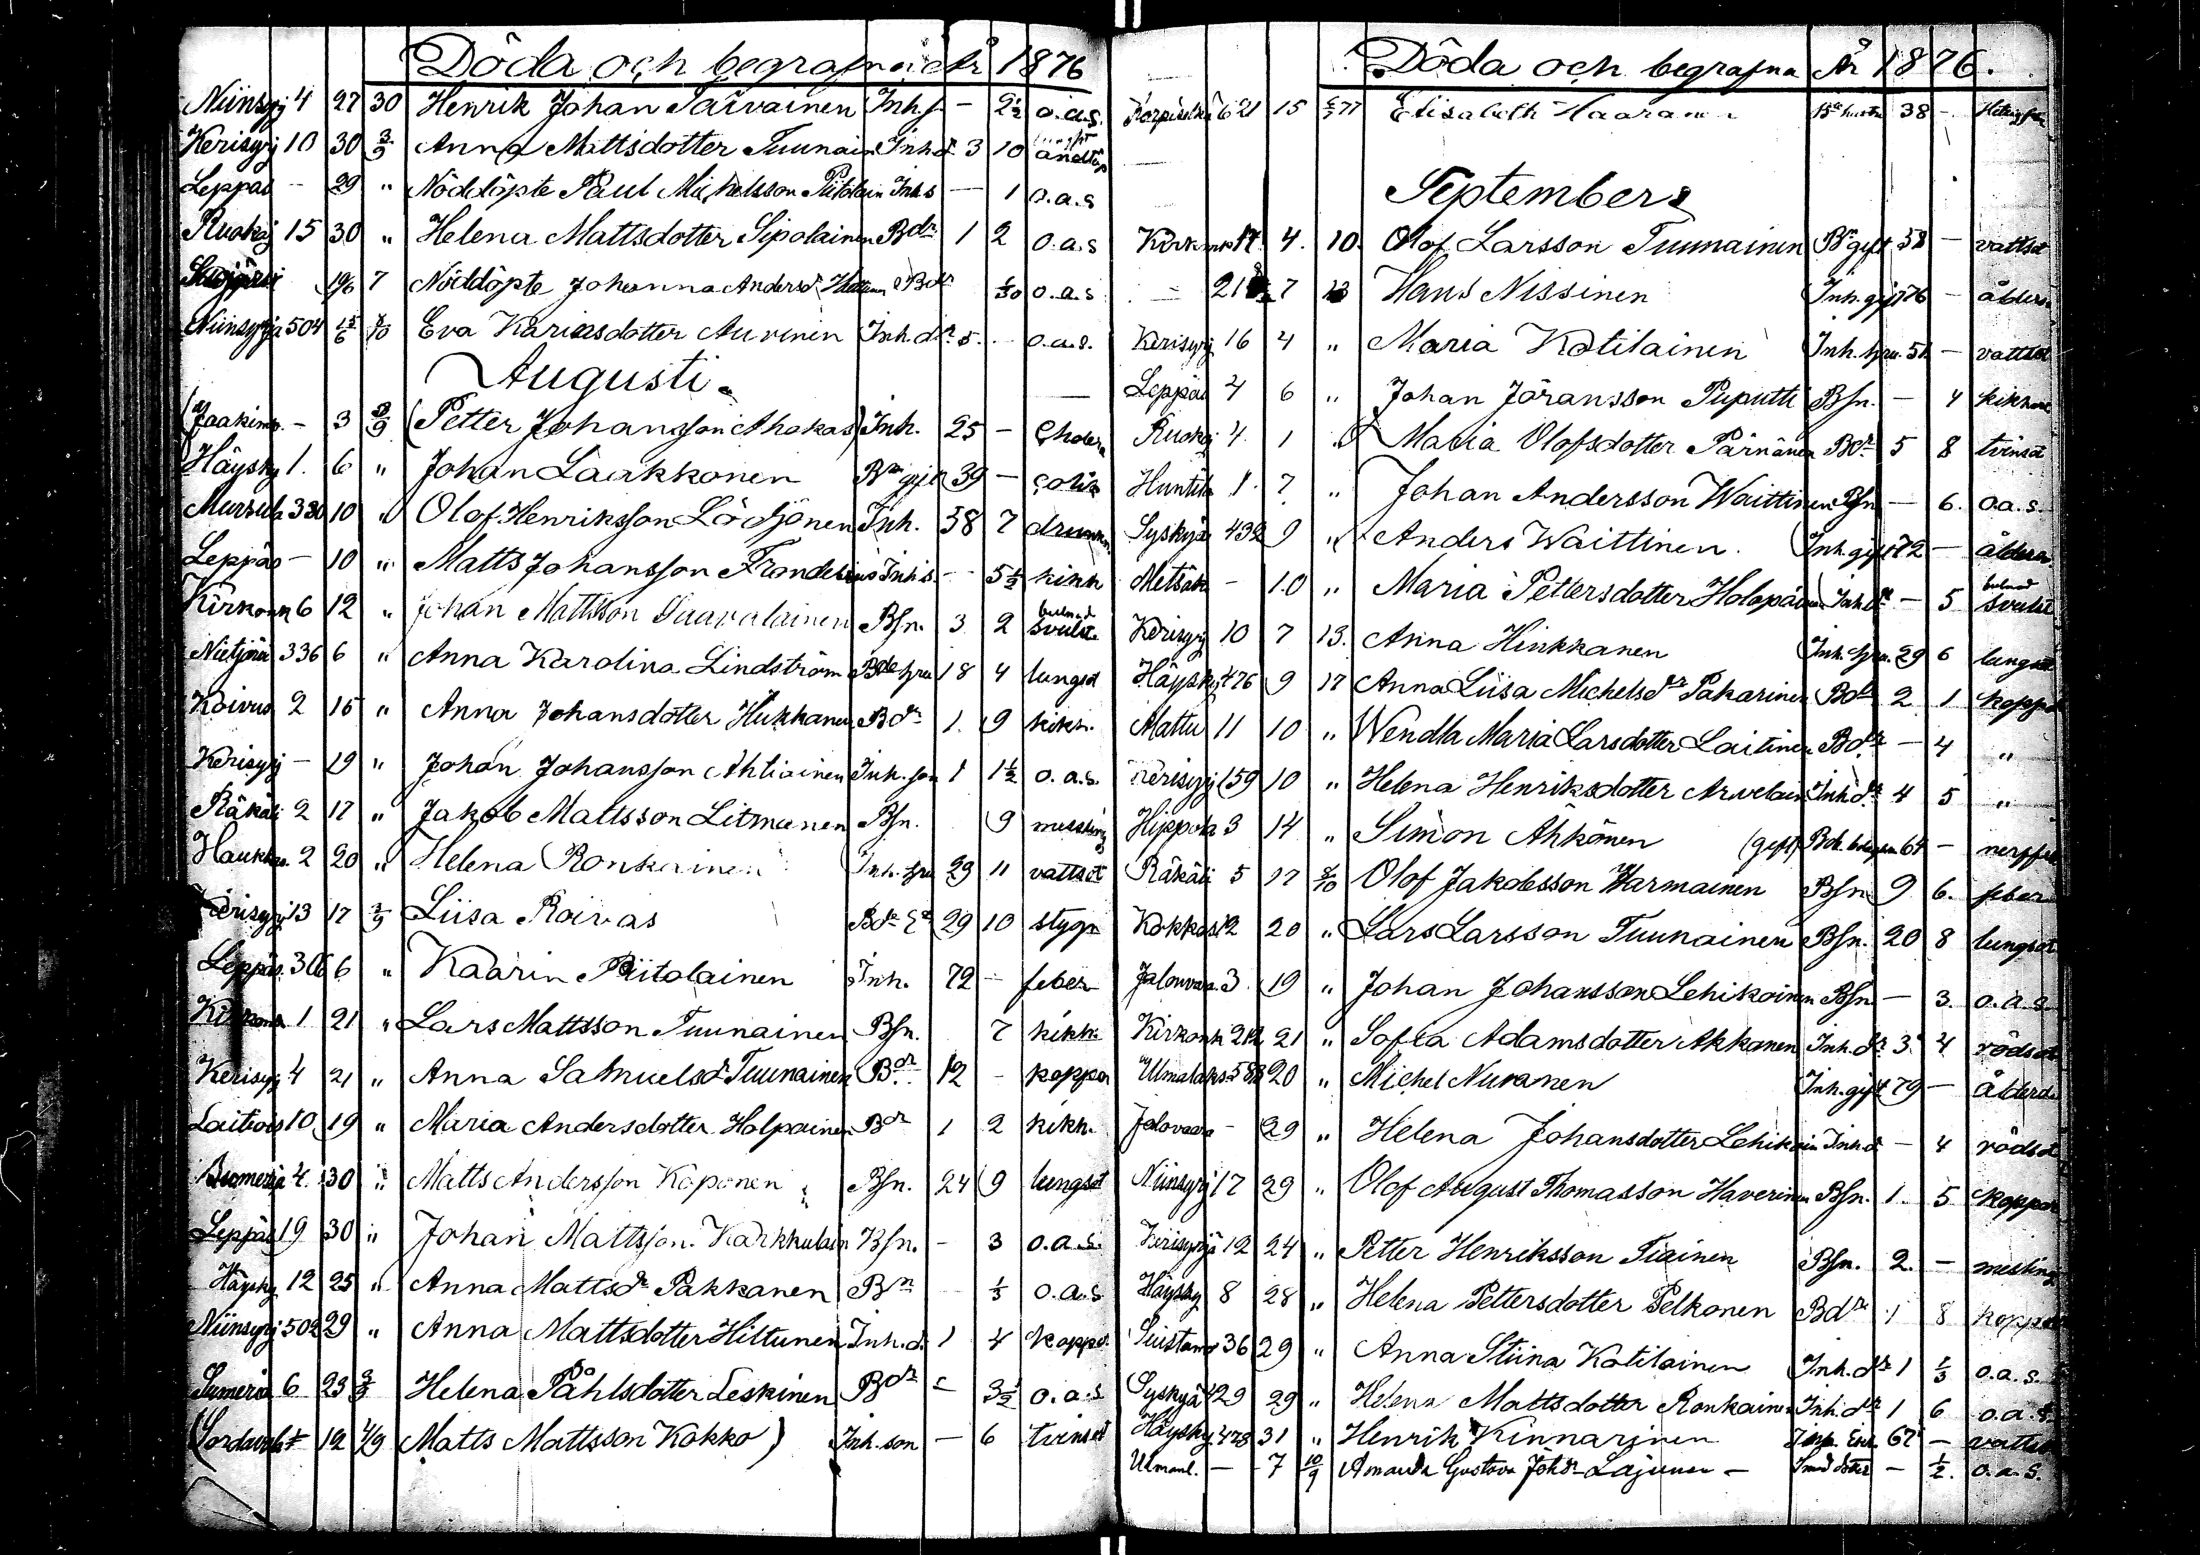 Döda och begrafna år 1876
Niinsyrj 4 27 30 Henrik Johan Parvainen Inh.s – 2½ o.a.s.
Kerisyrj 10 30 3/9 Anna Mattsdotter Tuunain Inh.d 3 10
Leppäs – 29 " Nöddöpte Paul Michelsson Piitolain Inh.s – 1 o.a.s
Ruokoj 15 30 " Helena Mattsdotter Sipolainen Bdr 1 2 o.a.s
19/6 7 Nöddöpte Johanna Andersd. Bdr 1/30 o.a.s
Niinsyrjä 504 15/6 8/10 Eva Kariasdotter Auvinen Inh.dr 5 – o.a.s.
Augusti
(Jaakima – 3 /9 (Petter Johansson Ahokas) Inh. 25 – Cholera
Häysky 1. 6 " Johan Laakkonen Bn gift 39 – colik
Mursula 330 10 " Olof Henriksson Lödjönen Inh. 38 7 drunkn
Leppäs – 10 " Matts Johansson Inh.s – 5½ kikh
Kirkonk 6 12 " Johan Mattsson Paavolainen Bsn. 3 2 bulnad svulst.
Nietjärv 336 6 " Anna Karolina Lindström Bde hru 18 4 lungsot
Koivus 2 15 " Anna Johansdotter Hukkanen Bdr 1. 9 kikh.
Kerisyrj – 19 " Johan Johansson Ahtiainen Inh. son 1 1½ o.a.s.
Räkäli 2 17 " Jakob Mattsson Litmanen Bsn. 9 messling
Haukkas. 2 20 " Helena Ronkainen Inh. hru 29 11 vattsot
Kerisyrj 13 17 3/9 Liisa Roivas 29 10 stygn
Leppäs. 306 6 " Kaarin Piitolainen Inh. 72 – feber
Kirkonk 1 21 " Lars Mattsson Tuunainen Bsn. 7 kikh.
Kerisyrj 4 21 " Anna Samuelsd. Tuunainen Bdr 12 – koppor
Laitiois 10 19 " Maria Andersdotter Holpainen Bdr 1 2 kikh.
4. 30 " Matts Andersson Koponen Bsn. 24 9 lungsot
Leppäs 19 30 " Johan Mattsson Karkkulain Bsn. – 3 o.a.s.
Häysky 12 25 " Anna Mattsdr Pakkanen Bn 1/3 o.a.s
Niinsyrj 502 29 " Anna Mattsdotter Hiltunen Inh.d. 1 4 koppor
Sumeria 6 23 3/9 Helena Påhlsdotter Leskinen Bdr – 3½ o.a.s
(Sordavala 12 4/9 Matts Mattsson Kokko) Inh. son – 6 tvinsot
Döda och begrafna År 1876.
Korpiselkä 621 15 Elisabeth Haaranen 38 –
September
Kirkonk 17. 4. 10. Olof Larsson Tuunainen Bn gift 38 – vattsot
– 21 7 13 Hans Nissinen Inh. gift 76 – ålderd
Kerisyrj 16 4 " Maria Kotilainen Inh. hru. 51 – vattsot
Leppäs 4 6 " Johan Jöransson Puputti Bsn. – 4 kikhost
Ruokoj 4. 1 " Maria Olofsdotter Pärnänen Bdr 5 8 tvinsot
Huntila 1. 7 " Johan Andersson Waittinen Bsn – 6. o.a.s.
Syskyjä 432 9 " Anders Waittinen. Inh. gift 72 – ålderd
Metsäk – 10 " Maria Pettersdotter Holopainen Inh.dr – 5 bulnad svulst
Kerisyrj 10 7 13. Anna Hinkkanen Inh. hru. 29 6 lungsot
Häysky 476 9 17 Anna Liisa Michelsdr Pakarinen Bdr 2 1 koppor
Mattu 11 10 " Wendla Maria Larsdotter Laitinen Bdr – 4 "
Kerisyrj 159 10 " Helena Henriksdotter Arvelain Inh.dr 4 5 "
Hippola 3 14 " Simon Ahkönen (gift) 64 – nervfeb
Räkäli 5 17 8/10 Olof Jakobsson Warmainen Bsn 9 6. feber
Kokkos 12 20 " Lars Larsson Tuunainen Bsn. 20 8 lungsot
Jalovaara 3. 19 " Johan Johansson Lehikoinen Bsn – 3. o.a.s.
Kirkonk 212 21 " Sofia Adamsdotter Akkanen Inh.dr 3. 4 rödsot
Ulmalaks 588 20 " Michel Nuranen Inh. gift 79 – ålderd.
Jalovaara – 29 " Helena Johansdotter Lehikoin Inh.d – 4 rödsot
Niinsyrj 17 29 " Olof August Thomasson Haverinen Bsn. 1. 5 koppor
Kerisyrjä 12 24 " Petter Henriksson Tiainen Bsn. 2. – mesling
Häysky 8 28 " Helena Pettersdotter Pelkonen Bdr 1 8 koppor
Suistamo 36 29 " Anna Stiina Kotilainen Inh.dr 1 1/3 o.a.s.
Syskyjä 429 29 " Helena Mattsdotter Ronkain Inh.dr 1 6 o.a.s.
Häysky 478 31 " Henrik Kinnarinen 67 – vattsot
Ulmal. – 7 10/9 Amanda Gustava Johdr Lajunen – dotter – ½. o.a.s.